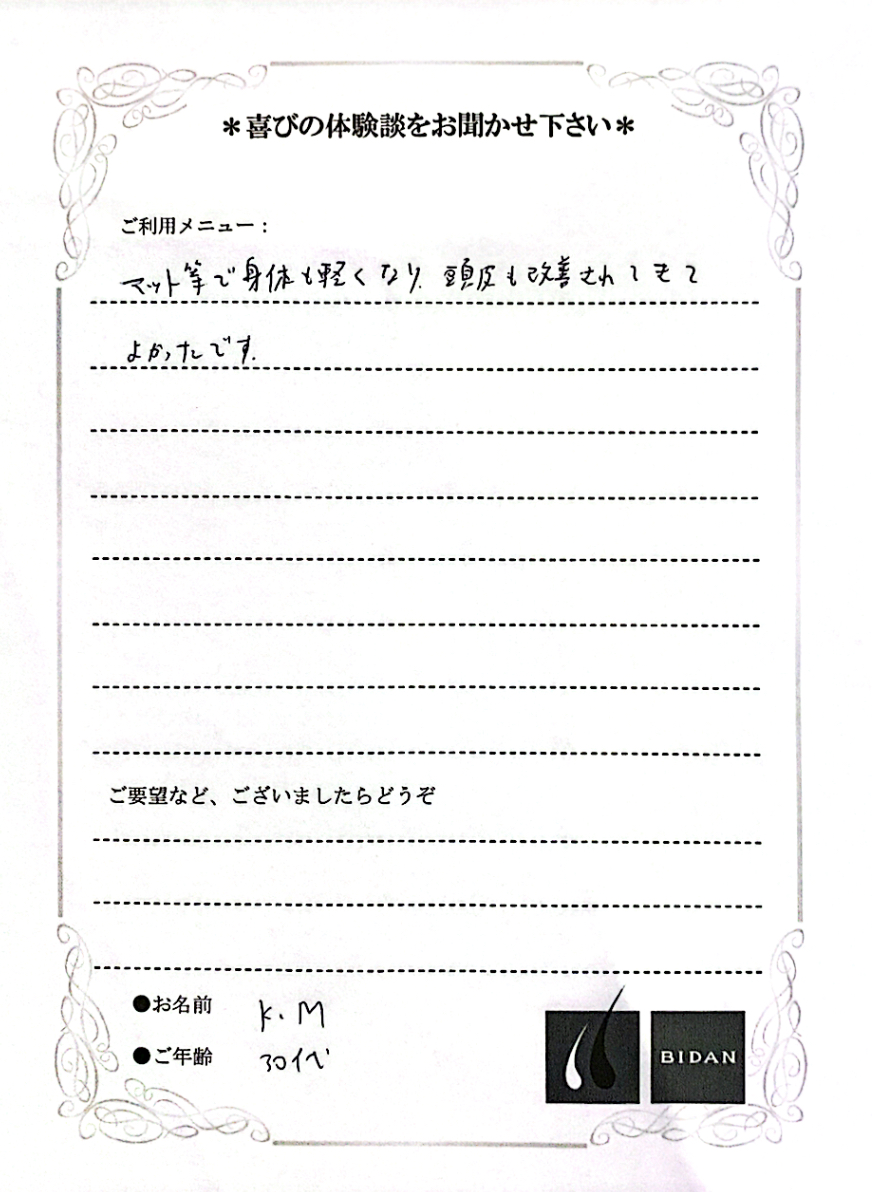 ＊喜びの体験談をお聞かせ下さい＊
ご利用メニュー：
マット等で身体も軽くなり、頭皮も改善されてきて
よかったです。
ご要望など、ございましたらどうぞ
●お名前 K.M
●ご年齢 30代
BIDAN